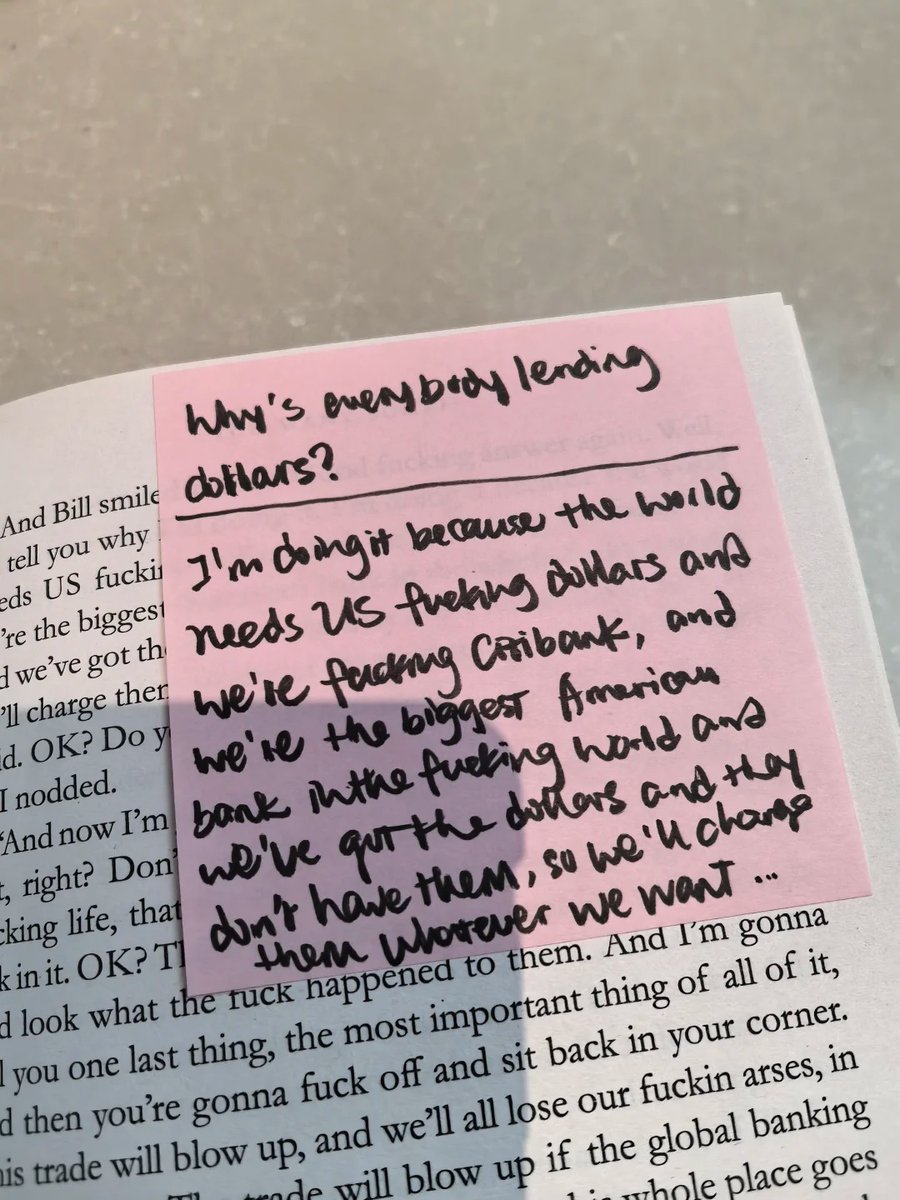 Why's everybody lending
dollars?
I'm doing it because the world
needs US fucking dollars and
we're fucking Citibank, and
we're the biggest American
bank in the fucking world and
we've got the dollars and they
don't have them, so we'll charge
them whatever we want ...
And Bill smile
tell you why
eds US fuckin
're the biggest
d we've got th
'll charge them
id. OK? Do y
I nodded.
'And now I'm
t, right? Don'
cking life, that
k in it. OK? T
d look what the fuck happened to them. And I'm gonna
l you one last thing, the most important thing of all of it,
d then you're gonna fuck off and sit back in your corner.
his trade will blow up, and we'll all lose our fuckin arses, in
trade will blow up if the global banking
whole place goes